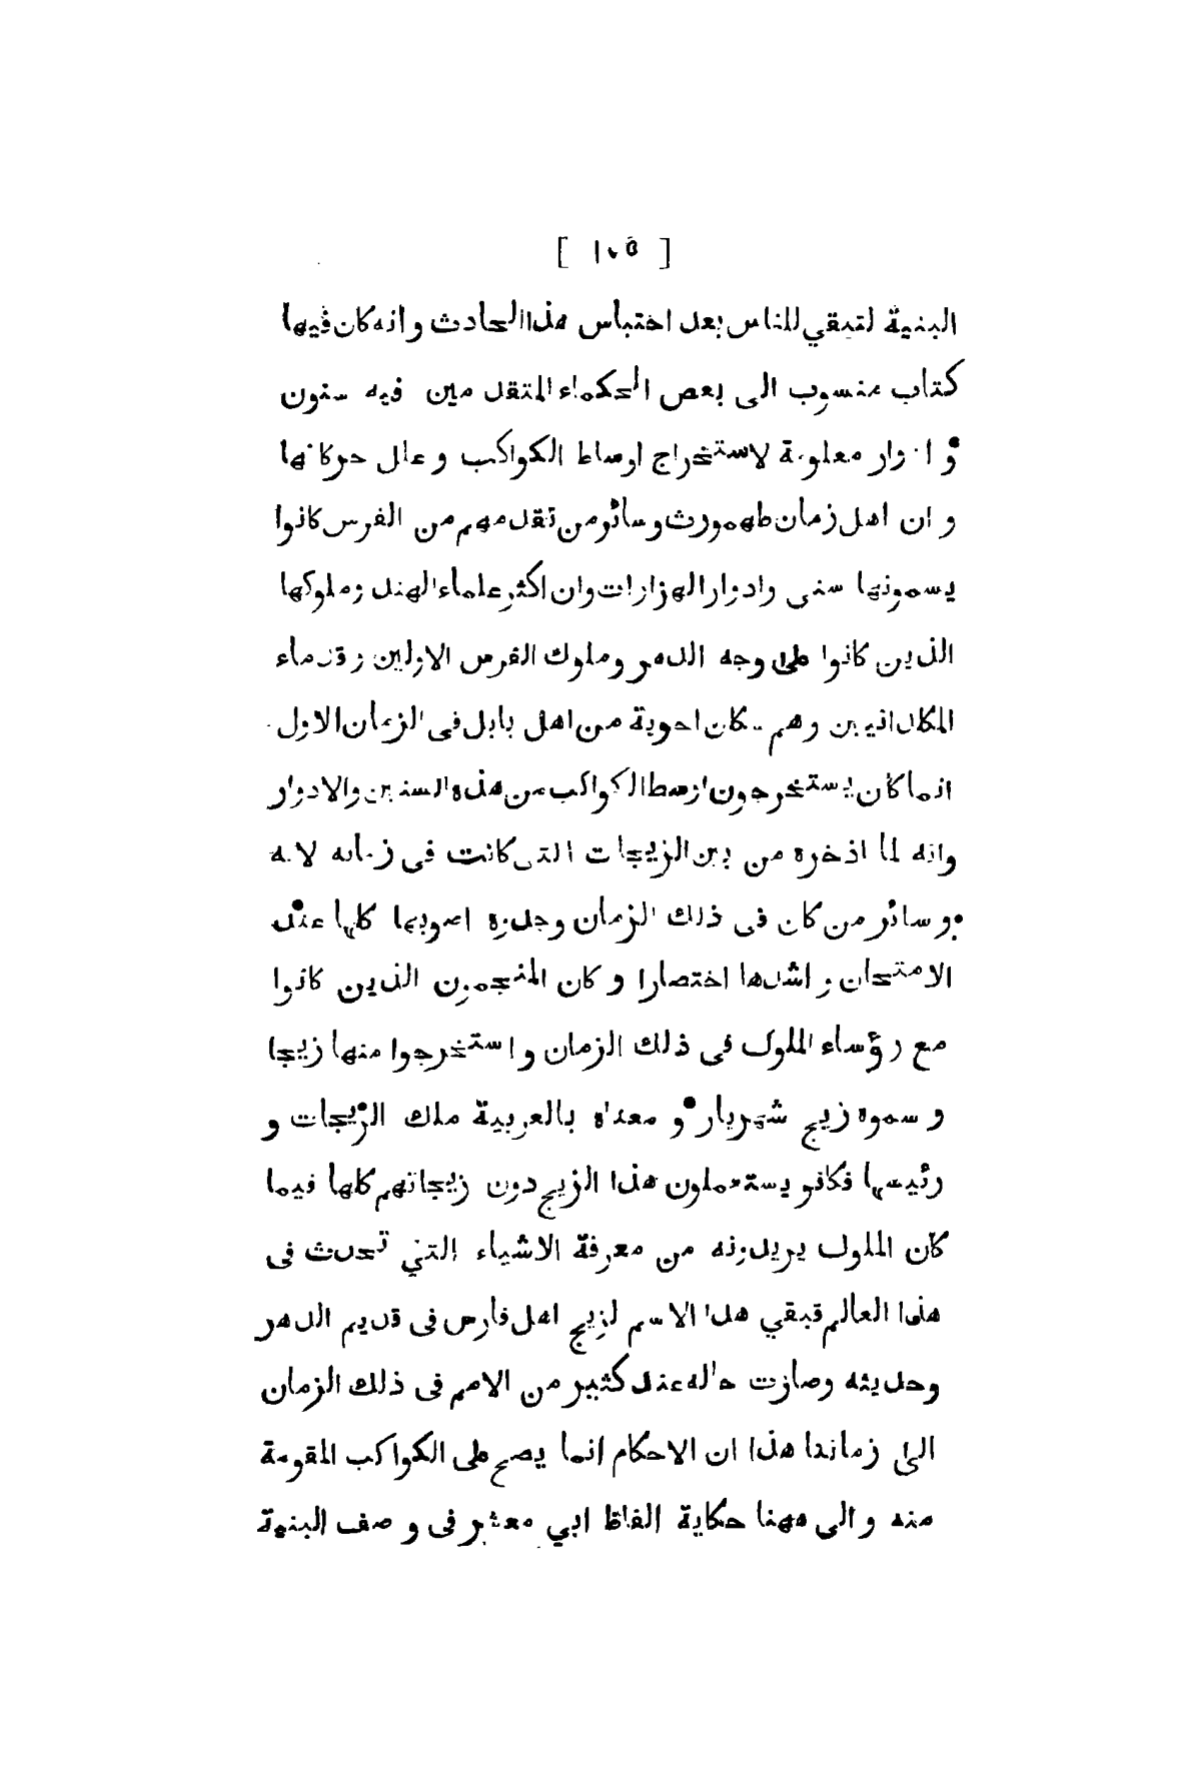 [ ١٠٥ ]
البنية لتبقي للناس بعد احتباس هذا الحادث وانه كان فيها
كتاب منسوب الى بعض الحكماء المتقدمين فيه سنون
و ادوار معلومة لاستخراج اوساط الكواكب و علل حركاتها
و ان اهل زمان طهمورث وسائر من تقدمهم من الفرس كانوا
يسمونها سنى وادوار الهزارات وان اكثر علماء الهند وملوكها
الذين كانوا على وجه الدهر وملوك الفرس الاولين وقدماء
الكلدانيين وهم سكان احوية من اهل بابل فى الزمان الاول
انما كان يستخرجون اوسط الكواكب من هذه السنين والادوار
وانه لما اذخره من بين الزيجات التى كانت فى زمانه لانه
و سائر من كان فى ذلك الزمان وجدوه اصوبها كلها عند
الامتحان و اشدها اختصارا و كان المنجمون الذين كانوا
مع رؤساء الملوك فى ذلك الزمان و استخرجوا منها زيجا
و سموه زيج شهريار و معناه بالعربية ملك الزيجات و
رئيسها فكانو يستعملون هذا الزيج دون زيجاتهم كلها فيما
كان الملوك يريدونه من معرفة الاشياء التي تحدث فى
هذا العالم فبقي هذا الاسم لزيج اهل فارس فى قديم الدهر
وحديثه وصارت حاله عند كثير من الامم فى ذلك الزمان
الى زماننا هذا ان الاحكام انما يصح على الكواكب المقومة
منه و الى ههنا حكاية الفاظ ابي معشر فى و صف البنية